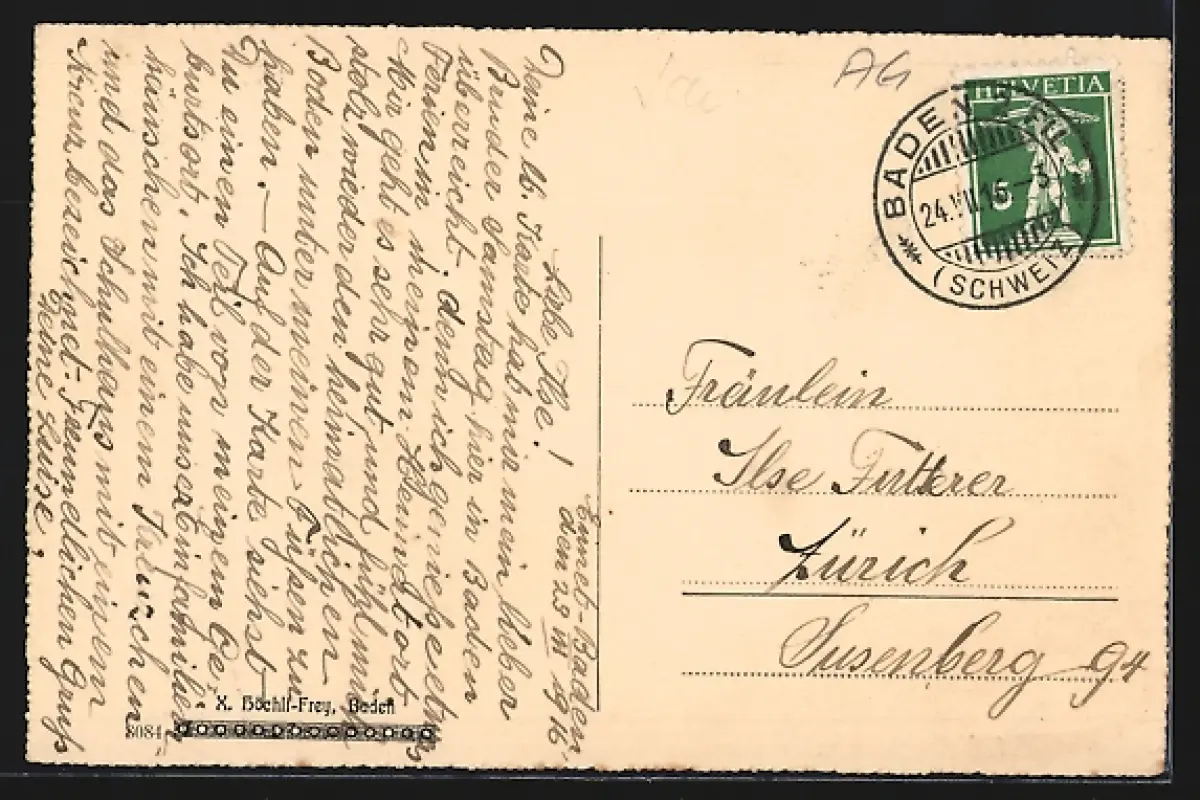 Ennet-Baden
den 23 VII 1916
Liebe Ilse!
Deine lb. Karte hat mir mein lieber
Bruder Samstag hier in Baden
überreicht, denn ich genieße etwas
Ferien in meinem Heimatort
Mir geht es sehr gut und fühl mich
stolz wieder den heimatlichen
Boden unter meinen Füßen zu
haben. — Auf der Karte siehst
Du einen Teil von meinem Ge-
burtsort. Ich habe unser Einfamilien-
häuschen mit einem
und das Schulhaus mit einem
Kreuz bezeichnet. Freundlichen Gruß
Deine Luise.
X. Höchli-Frey, Baden
8084
AG
HELVETIA
5
BADEN
24.VII.16–3
(SCHWEIZ)
Fräulein
Ilse Futterer
Zürich
Susenberg 94